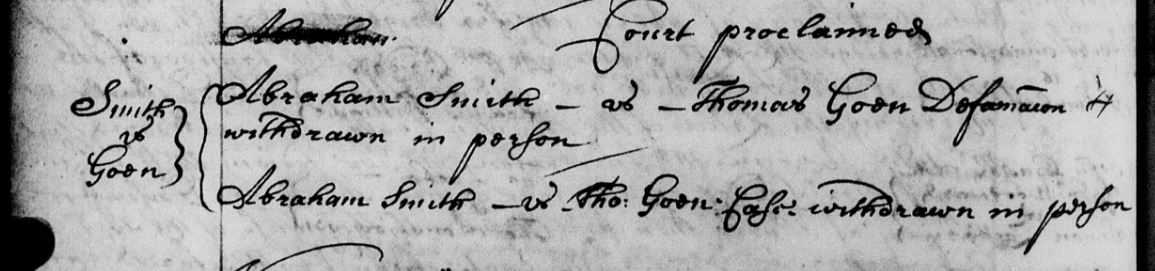 Abraham Court proclaimed
Smith Abraham Smith – vs – Thomas Goen Defamac̄on
vs withdrawn in person
Goen
Abraham Smith – vs Tho: Goen: Case: withdrawn in person